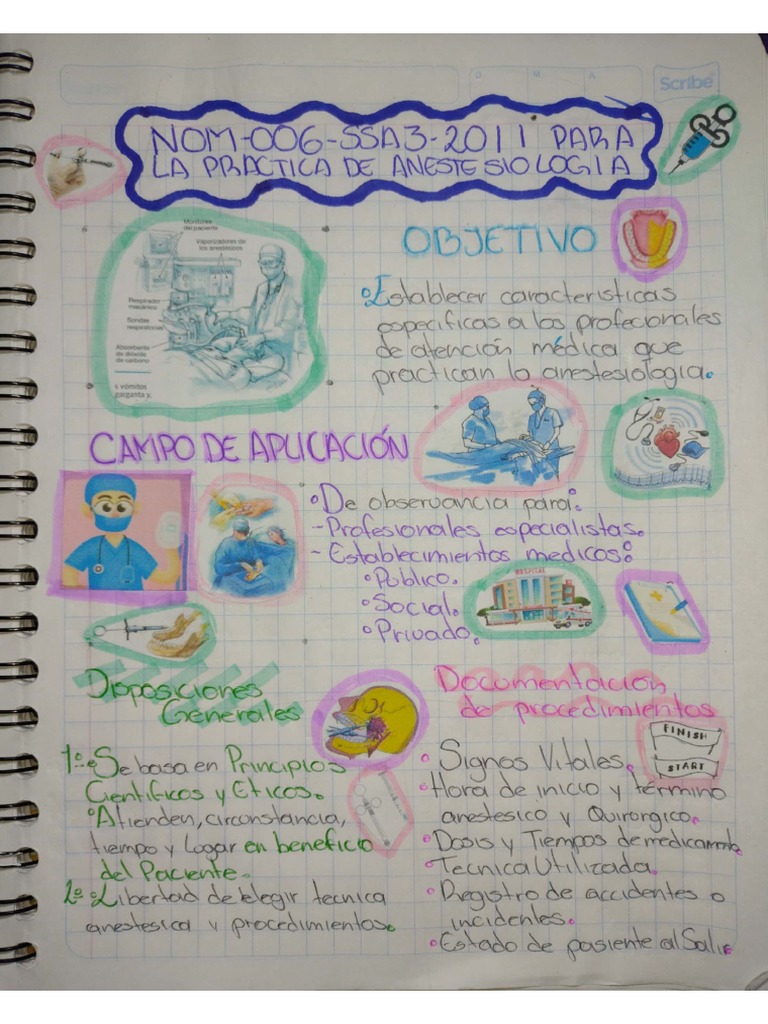 D. M. A.
Scribe
NOM-006-SSA3-2011 PARA
LA PRACTICA DE ANESTESIOLOGIA
Monitores
del paciente
Vaporizadores de
los anestésicos
Respirador
mecánico
Sondas
respiratorias
Absorbente
de dióxido
de carbono
s vómitos
garganta y,
OBJETIVO
Establecer caracteristicas
especificas a los profecionales
de atención médica que
practican la anestesiologia.
CAMPO DE APLICACIÓN
De observancia para:
- Profesionales especialistas.
- Establecimientos medicos:
Publico.
Social.
Privado.
HOSPITAL
Disposiciones
Generales
1º Se basa en Principios
Científicos y Eticos.
Atienden, circunstancia,
tiempo y Lugar en beneficio
del Paciente.
2º Libertad de elegir tecnica
anestesica y procedimientos.
Documentación
de procedimientos
FINISH
START
Signos Vitales.
Hora de inicio y término
anestesico y Quirorgico.
Dosis y Tiempos de medicamento
Tecnica Utilizada.
Registro de accidentes o
incidentes.
Estado de pasiente al Salir